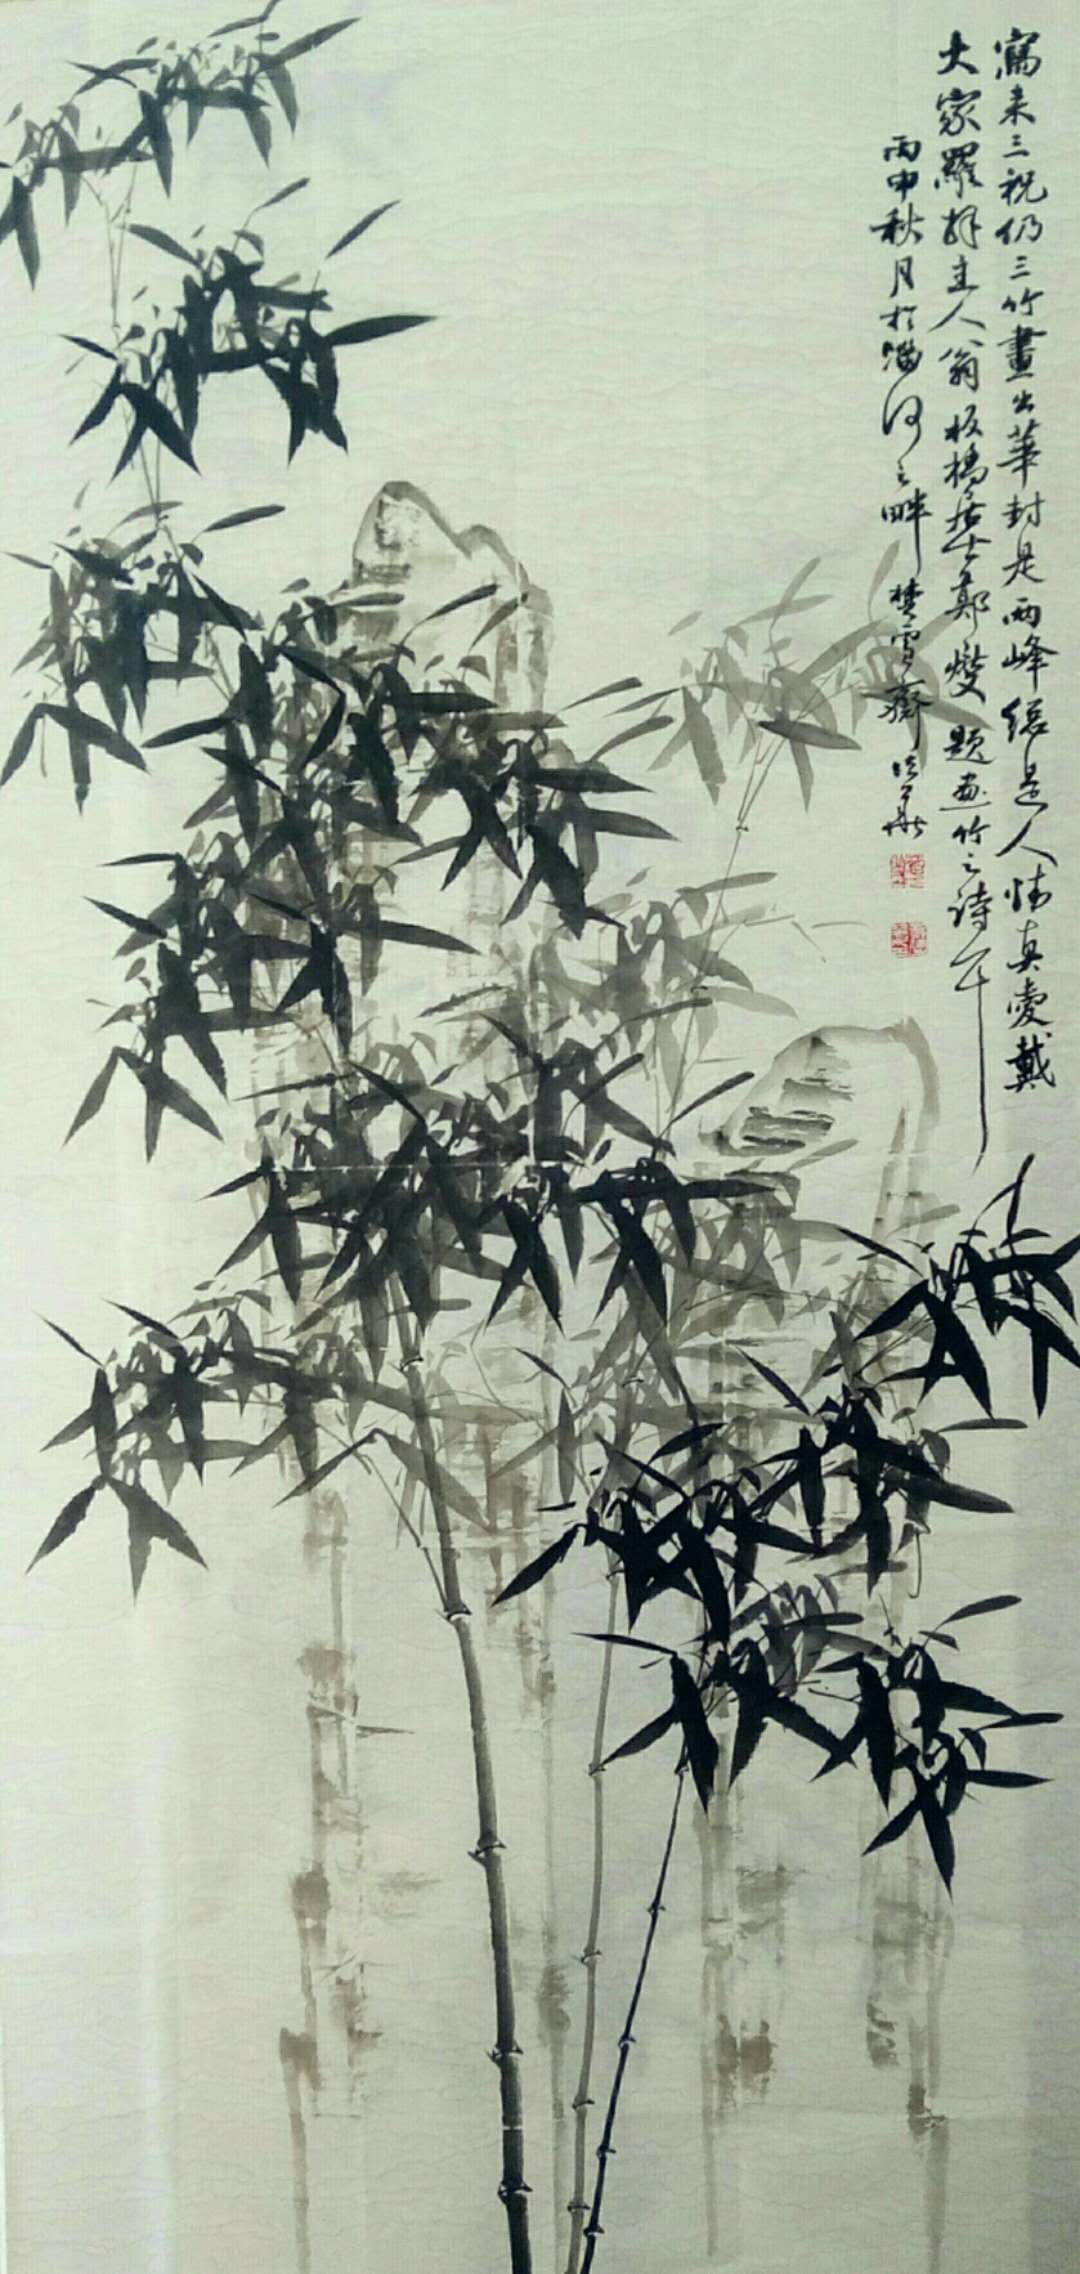 寫来三祝仍三竹畫出華封是两峰總是人情真愛戴
大家羅拜主人翁板橋居士鄭燮題画竹之詩一年
丙申秋月於淄河之畔樊雪齋